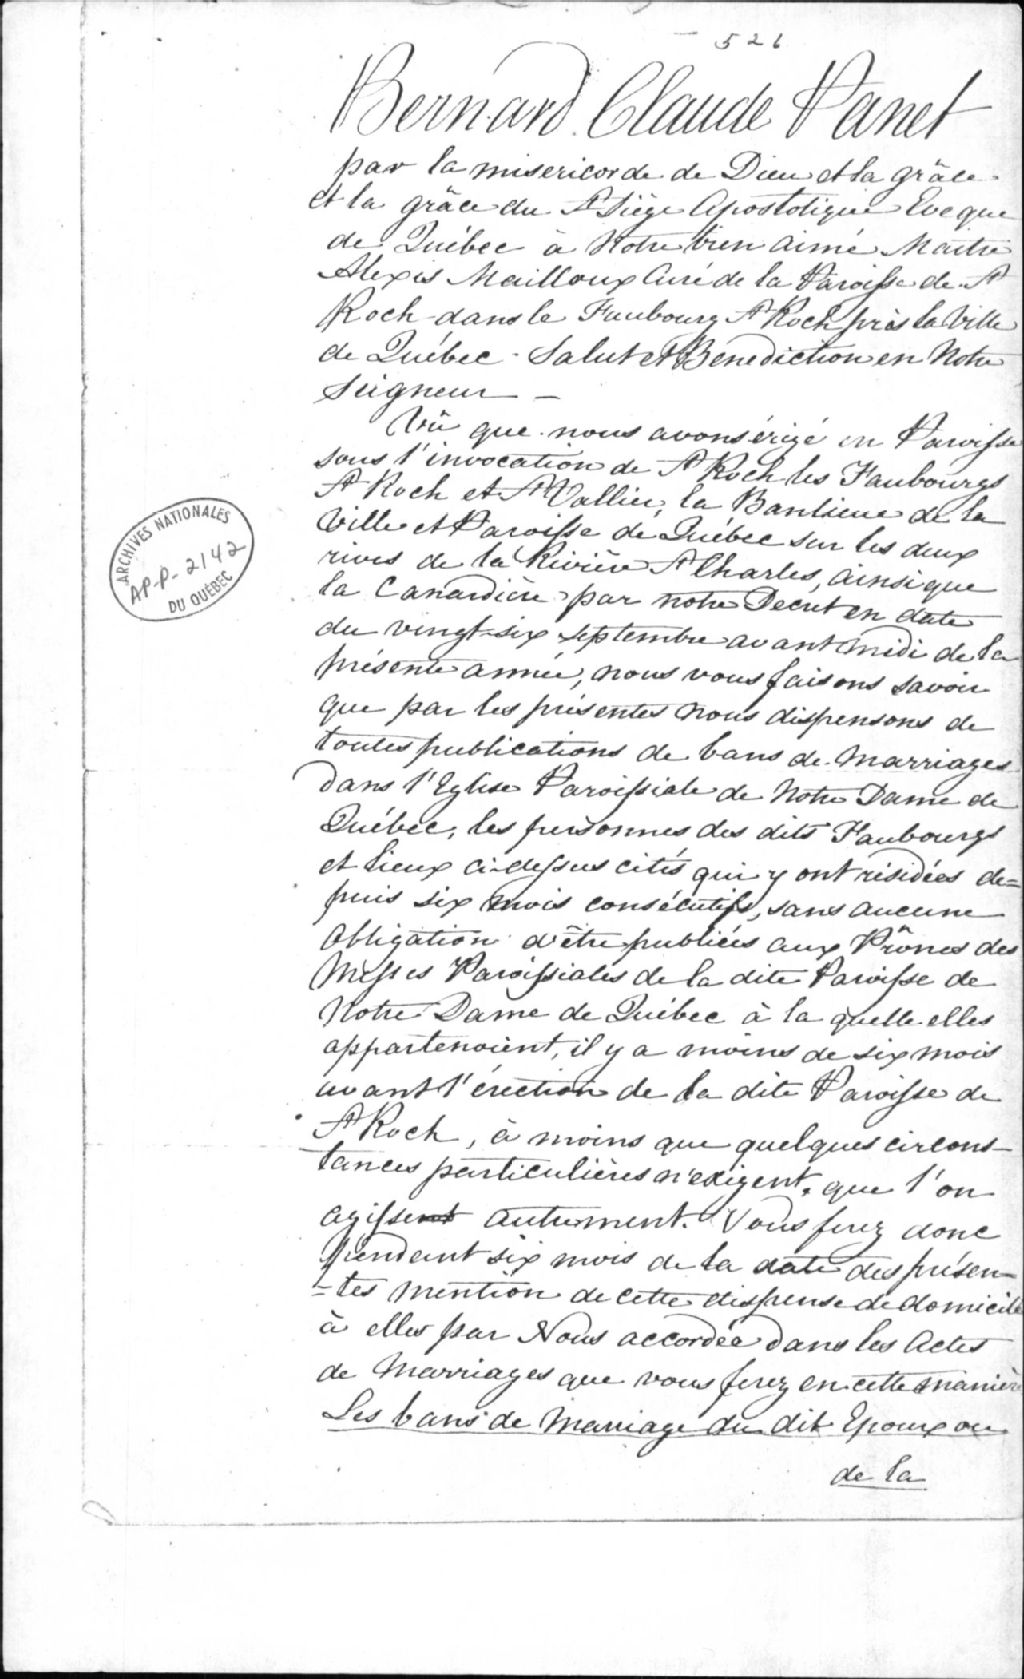 526
Bernard Claude Panet
par la misericorde de Dieu et la grâce
et la grâce du St Siège Apostolique Eveque
de Québec à Notre bien aimé Maitre
Alexis Mailloux Curé de la Paroisse de St
Roch dans le Faubourg St Roch près la Ville
de Québec - Salut et Benediction en Notre
Seigneur —
Vû que nous avons érigé en Paroisse
sous l'invocation de St Roch les Faubourgs
St Roch et St Vallier, la Banlieue de la
Ville et Paroisse de Québec sur les deux
rives de la Rivière St Charles, ainsi que
la Canardière par notre Decret en date
du vingt-six septembre avant midi de la
présente année, nous vous faisons savoir
que par les présentes nous dispensons de
toutes publications de bans de marriages
dans l'Eglise Paroissiale de Notre Dame de
Québec, les personnes des dits Faubourgs
et lieux ci-dessus cités qui y ont residées de=
puis six mois consécutifs, sans aucune
Obligation d'être publiées aux Prônes des
Messes Paroissiales de la dite Paroisse de
Notre Dame de Québec à la quelle elles
appartenoient, il y a moins de six mois
avant l'érection de la dite Paroisse de
St Roch, à moins que quelques circons-
tances particulières n'exigent, que l'on
agissent autrement. Vous ferez donc
pendant six mois de la date des présen-
-tes mention de cette dispense de domicile
à elles par Nous accordée dans les Actes
de Marriages que vous ferez en cette manière
Les bans de Mariage du dit Epoux ou
de la
ARCHIVES NATIONALES
AP-P-2142
DU QUÉBEC